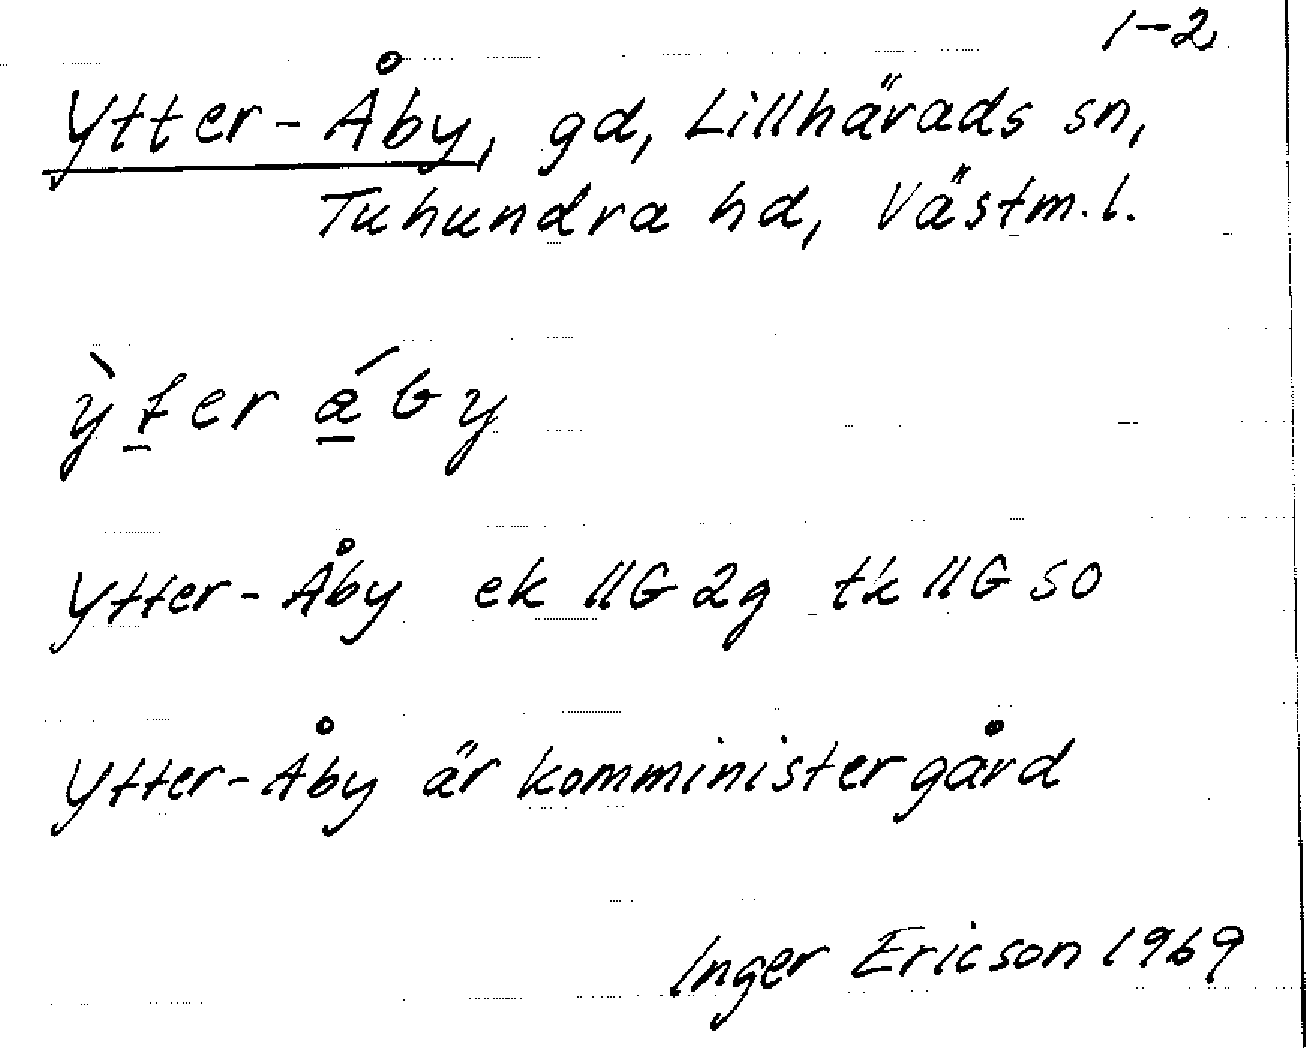 1-2
Ytter-Åby, gd, Lillhärads sn,
Tuhundra hd, Västm.l.
ỳt̲er á̲by
Ytter-Åby ek 11G2g tk 11G SO
Ytter-Åby är komministergård
Inger Ericson 1969